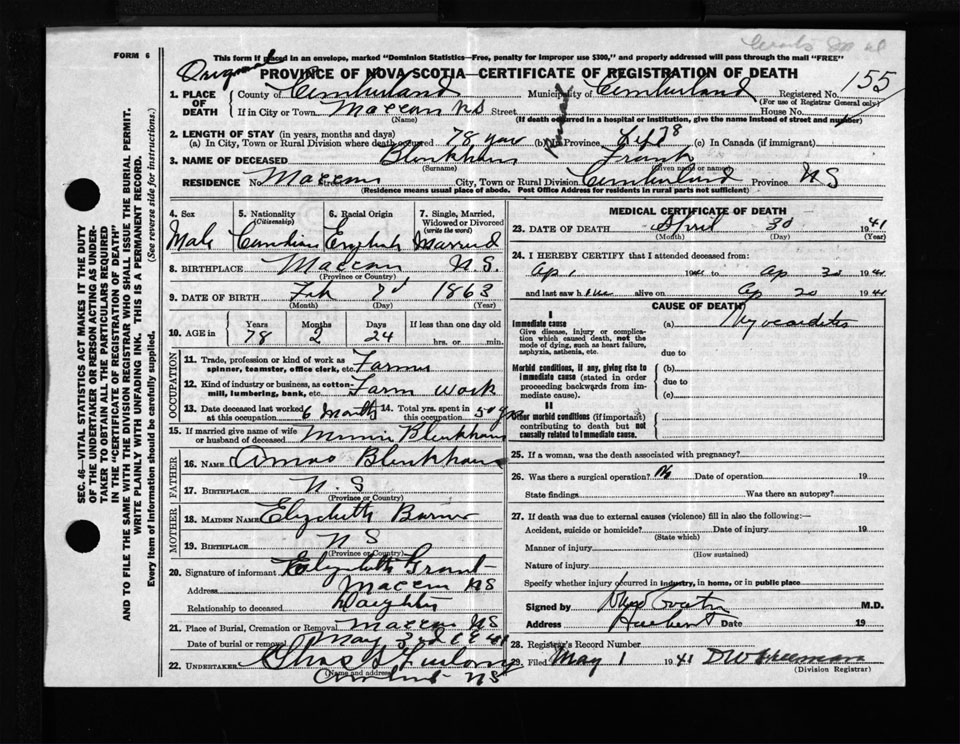 FORM 6
This form if placed in an envelope, marked "Dominion Statistics—Free, penalty for improper use $300," and properly addressed will pass through the mail "FREE"
Original
PROVINCE OF NOVA SCOTIA—CERTIFICATE OF REGISTRATION OF DEATH
155
1. PLACE OF DEATH County of Cumberland Municipality of Cumberland Registered No.
(For use of Registrar General only)
If in City or Town Maccan NS Street House No.
(Name) (If death occurred in a hospital or institution, give the name instead of street and number)
2. LENGTH OF STAY (in years, months and days)
(a) In City, Town or Rural Division where death occurred 78 years (b) In Province 78 (c) In Canada (if immigrant)
3. NAME OF DECEASED Blenkhorn Frank
(Surname) (Given name or names)
RESIDENCE No. Maccan Street City, Town or Rural Division Cumberland Province NS
(Residence means usual place of abode. Post Office Address for residents in rural parts not sufficient)
4. Sex 5. Nationality (Citizenship) 6. Racial Origin 7. Single, Married, Widowed or Divorced (write the word)
Male Canadian English Married
8. BIRTHPLACE Maccan N.S.
(Province or Country)
9. DATE OF BIRTH Feb 7d 1863
(Month) (Day) (Year)
10. AGE in Years Months Days If less than one day old
78 2 24 hrs. or min.
OCCUPATION
11. Trade, profession or kind of work as spinner, teamster, office clerk, etc. Farmer
12. Kind of industry or business, as cotton-mill, lumbering, bank, etc. Farm Work
13. Date deceased last worked at this occupation 6 Months 14. Total yrs. spent in this occupation 50 yrs
15. If married give name of wife or husband of deceased Minnie Blenkhorn
FATHER
16. NAME Amos Blenkhorn
17. BIRTHPLACE N.S
(Province or Country)
MOTHER
18. MAIDEN NAME Elizabeth
19. BIRTHPLACE NS
(Province or Country)
20. Signature of informant Elizabeth Grant
Address Maccan NS
Relationship to deceased Daughter
21. Place of Burial, Cremation or Removal Maccan NS
Date of burial or removal May 3rd 1941
22. UNDERTAKER Chas Furlong
(Name and address)
Amherst NS
MEDICAL CERTIFICATE OF DEATH
23. DATE OF DEATH April 30 1941
(Month) (Day) (Year)
24. I HEREBY CERTIFY that I attended deceased from:
Ap 1 1941 to Ap 30 1941
and last saw h alive on Ap 20 1941
CAUSE OF DEATH
I
Immediate cause (a) Myocarditis
Give disease, injury or complication which caused death, not the mode of dying, such as heart failure, asphyxia, asthenia, etc.
due to
Morbid conditions, if any, giving rise to immediate cause (stated in order proceeding backwards from immediate cause).
(b)
due to
(c)
II
Other morbid conditions (if important) contributing to death but not causally related to immediate cause.
25. If a woman, was the death associated with pregnancy?
26. Was there a surgical operation? No Date of operation 19
State findings Was there an autopsy?
27. If death was due to external causes (violence) fill in also the following:—
Accident, suicide or homicide? Date of injury 19
(State which)
Manner of injury
(How sustained)
Nature of injury
Specify whether injury occurred in industry, in home, or in public place
Signed by M.D.
Address Date 19
28. Registrar's Record Number
29. Filed May 1 1941 D W Freeman
(Division Registrar)
SEC. 46—VITAL STATISTICS ACT MAKES IT THE DUTY
OF THE UNDERTAKER OR PERSON ACTING AS UNDER-
TAKER TO OBTAIN ALL THE PARTICULARS REQUIRED
IN THE "CERTIFICATE OF REGISTRATION OF DEATH"
AND TO FILE THE SAME WITH THE DIVISION REGISTRAR WHO SHALL ISSUE THE BURIAL PERMIT.
WRITE PLAINLY WITH UNFADING INK. THIS IS A PERMANENT RECORD.
Every item of information should be carefully supplied. (See reverse side for instructions.)